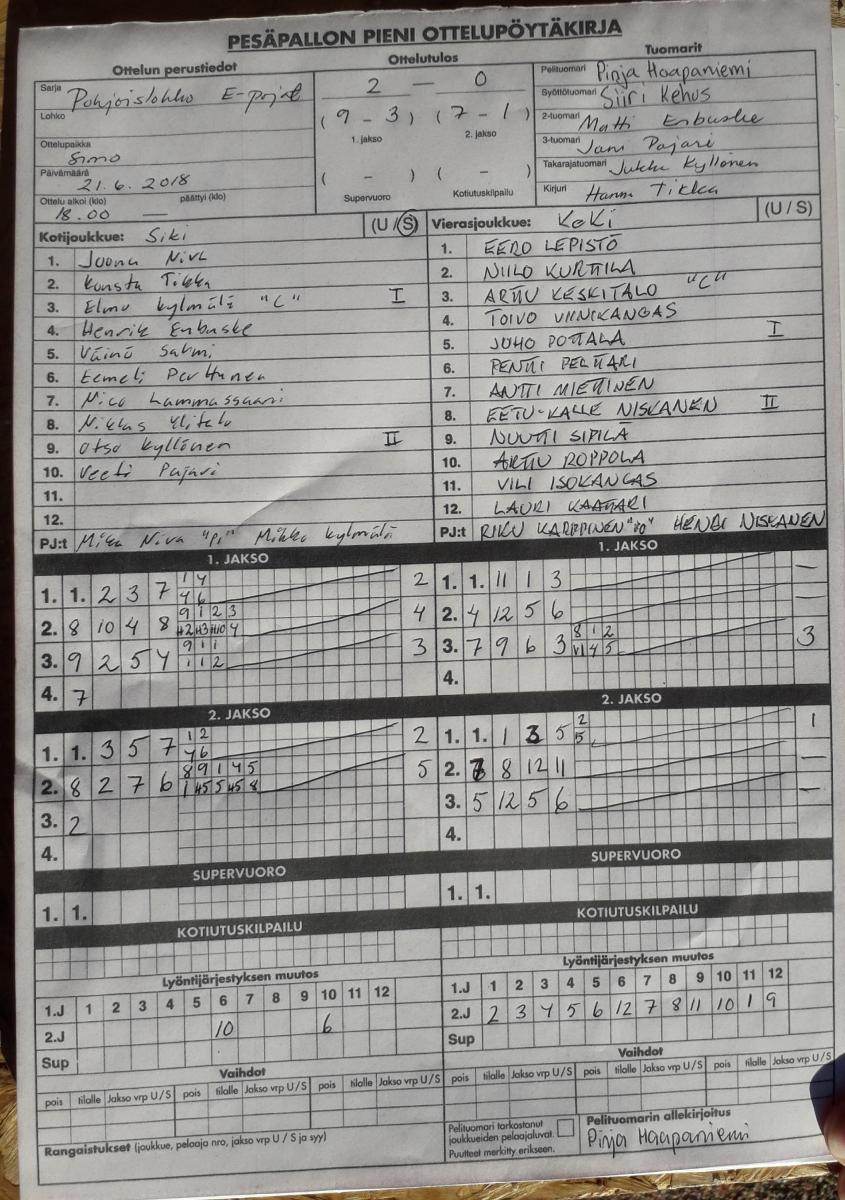 PESÄPALLON PIENI OTTELUPÖYTÄKIRJA
Ottelun perustiedot Ottelutulos Tuomarit
Sarja Pohjoislohko E-pojat
Lohko
Ottelupaikka Simo
Päivämäärä 21.6.2018
Ottelu alkoi (klo) päättyi (klo)
18.00 —
2 — 0
( 9 - 3 ) ( 7 - 1 )
1. jakso 2. jakso
( - ) ( - )
Supervuoro Kotiutuskilpailu
Pelituomari Pinja Haapaniemi
Syöttötuomari Siiri Kehus
2-tuomari Matti Erbuske
3-tuomari Jani Pajari
Takarajatuomari Jukka Kyllönen
Kirjuri Hanna Tikka
Kotijoukkue: Siki (U / S)
1. Joona Niva
2. Konsta Tikka
3. Elmo Kylmälä "C" I
4. Henrik Erbuske
5. Väinö Salmi
6. Eemeli Perttunen
7. Nico Lammassaari
8. Niklas Ylitalo
9. Otso Kyllönen II
10. Veeti Pajari
11.
12.
PJ:t Mika Niva "PJ" Mikko Kylmälä
Vierasjoukkue: KeKi (U / S)
1. EERO LEPISTÖ
2. NIILO KURTTILA
3. ARTTU KESKITALO "C"
4. TOIVO VIINIKANGAS
5. JUHO POTTALA I
6. PENTTI PELTTARI
7. ANTTI MIETTINEN
8. EETU-KALLE NISKANEN II
9. NUUTTI SIPILÄ
10. ARTTU ROPPOLA
11. VILI ISOKANGAS
12. LAURI KAATTARI
PJ:t RIKU KARPPINEN HENRI NISKANEN
1. JAKSO
1. 1. 2 3 7 1 4 2
4 6
2. 8 10 4 8 9 1 2 3 4
3. 9 2 5 4 9 1 1 3
1 1 2
4. 7
2. JAKSO
1. 1. 3 5 7 1 2 2
4 6
2. 8 2 7 6 8 9 1 4 5 5
3. 2
4.
SUPERVUORO
1. 1.
KOTIUTUSKILPAILU
1. JAKSO
1. 1. 11 1 3 —
2. 4 12 5 6 —
3. 7 9 6 3 8 1 2 3
4.
2. JAKSO
1. 1. 1 3 5 2 1
5
2. 8 12 11 —
3. 5 12 5 6 —
4.
SUPERVUORO
1. 1.
KOTIUTUSKILPAILU
Lyöntijärjestyksen muutos
1.J 1 2 3 4 5 6 7 8 9 10 11 12
2.J 10 6
Sup
Vaihdot
pois tilalle Jakso vrp U/S pois tilalle Jakso vrp U/S pois tilalle Jakso vrp U/S
Rangaistukset (joukkue, pelaaja nro, jakso vrp U / S ja syy)
Lyöntijärjestyksen muutos
1.J 1 2 3 4 5 6 7 8 9 10 11 12
2.J 2 3 4 5 6 12 7 8 11 10 1 9
Sup
Vaihdot
pois tilalle Jakso vrp U/S pois tilalle Jakso vrp U/S pois tilalle Jakso vrp U/S
Pelituomari tarkastanut
joukkueiden pelaajaluvat.
Puutteet merkitty erikseen.
Pelituomarin allekirjoitus
Pinja Haapaniemi